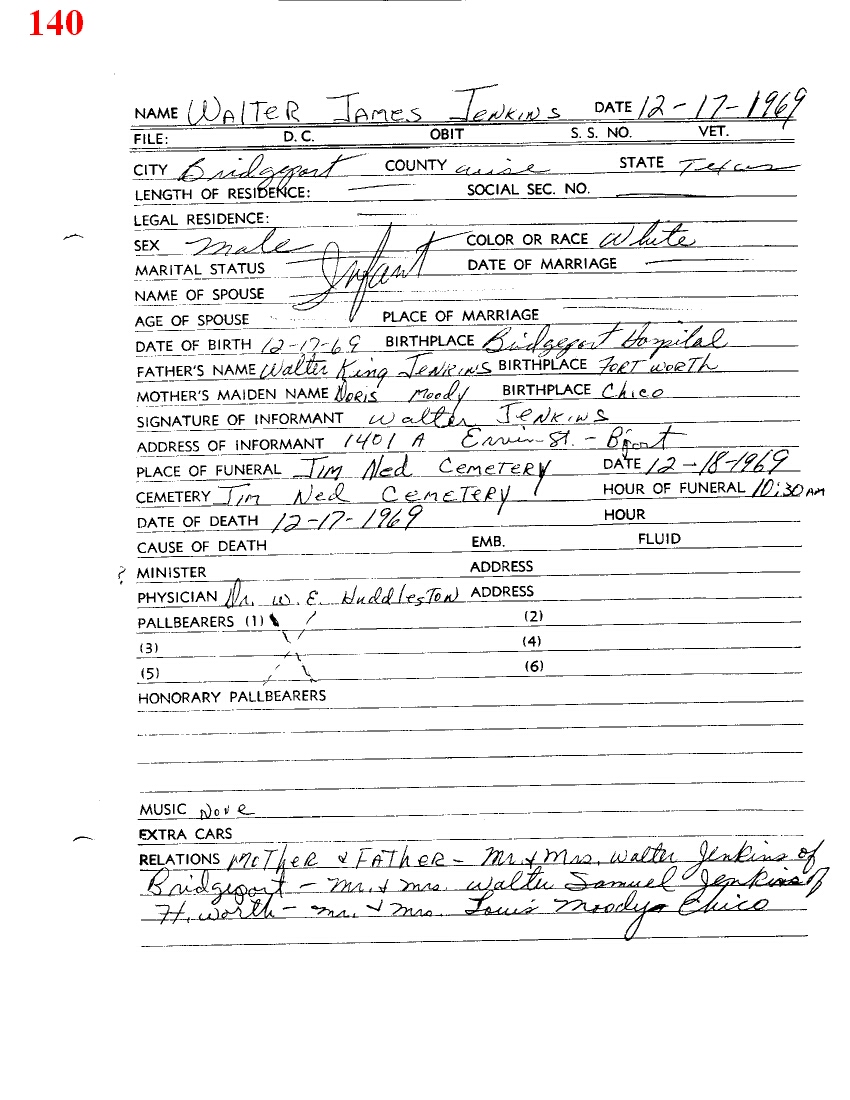 140
NAME WALTER JAMES JENKINS DATE 12-17-1969
FILE: D.C. OBIT S.S. NO. VET.
CITY Bridgeport COUNTY wise STATE Texas
LENGTH OF RESIDENCE: SOCIAL SEC. NO.
LEGAL RESIDENCE:
SEX male COLOR OR RACE White
MARITAL STATUS Infant DATE OF MARRIAGE
NAME OF SPOUSE
AGE OF SPOUSE PLACE OF MARRIAGE
DATE OF BIRTH 12-17-69 BIRTHPLACE Bridgeport Hospital
FATHER'S NAME Walter King JENKINS BIRTHPLACE FORT WORTH
MOTHER'S MAIDEN NAME DORIS Moody BIRTHPLACE Chico
SIGNATURE OF INFORMANT Walter JENKINS
ADDRESS OF INFORMANT 1401 A Ervin St. - B'port
PLACE OF FUNERAL JIM NED CEMETERY DATE 12-18-1969
CEMETERY JIM NED CEMETERY HOUR OF FUNERAL 10:30 AM
DATE OF DEATH 12-17-1969 HOUR
CAUSE OF DEATH EMB. FLUID
? MINISTER ADDRESS
PHYSICIAN Dr. W. E. Huddleston ADDRESS
PALLBEARERS (1) (2)
(3) (4)
(5) (6)
HONORARY PALLBEARERS
MUSIC None
EXTRA CARS
RELATIONS MOTHER & FATHER - Mr. & Mrs. Walter Jenkins of
Bridgeport - Mr. & Mrs. Walter Samuel Jenkins of
Ft. Worth - Mr. & Mrs. Louis Moody Chico